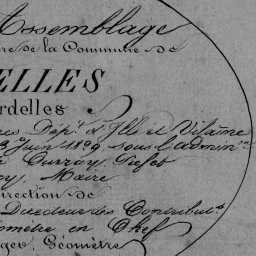 Assemblage
re de la Commune de
ELLES
rdelles
res Dép.t d'Ille et Vilaine
Juin 1829 sous l'admin.on
Préfet
Maire
irection de
Directeur des Contribut.s
omètre en Chef
Géomètre